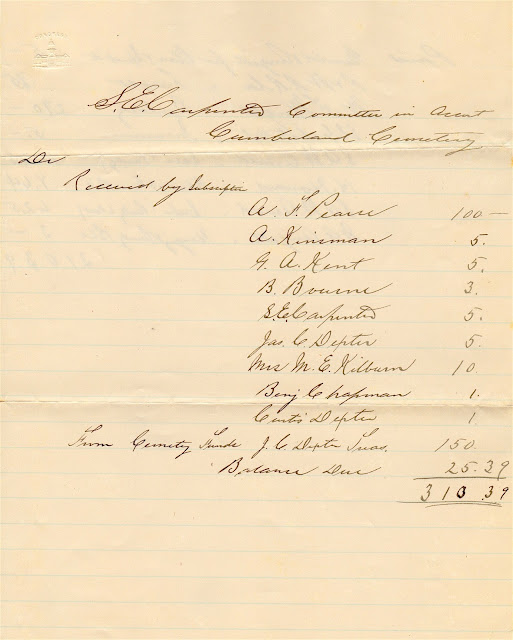 S.E. Carpenter Committee in Acent
Cumberland Cemetery
Dr
Received by Subscription
A. F. Pearse 100 —
A. Kinsman 5.
G. A. Kent 5.
B. Bourne 3.
S.E. Carpenter 5.
Jas. C. Depter 5.
Mrs M. E. Kilburn 10
Benj Chapman 1.
Curtis Depter 1
From Cemetery Funds J. C. Depter Treas. 150
Balance Due 25.39
310.39